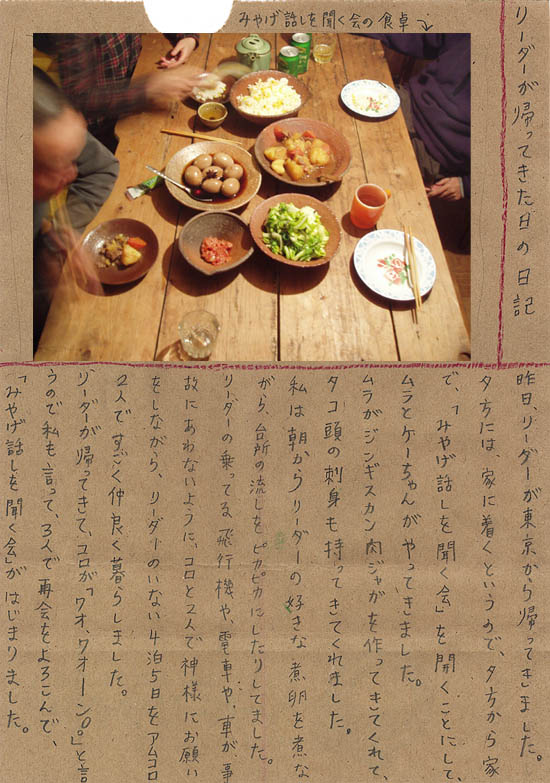 リーダーが帰ってきた日の日記
みやげ話しを聞く会の食卓
昨日、リーダーが東京から帰ってきました。
夕方には、家に着くというので、夕方から家
で、「みやげ話しを聞く会」を開くことにして、
ムラとケーちゃんがやってきました。
ムラがジンギスカン肉ジャガを作ってきてくれて、
タコ頭の刺身も持ってきてくれました。
私は朝からリーダーの好きな煮卵を煮な
がら、台所の流しをピカピカにしたりしてました。
リーダーの乗ってる飛行機や、電車や、車が事
故にあわないように、コロと2人で神様にお願い
をしながら、リーダーのいない4泊5日をアムコロ
2人ですごく仲良く暮らしました。
リーダーが帰ってきて、コロが「ワオ、ワオーン。。」と言
うので私も言って、3人で再会をよろこんで、
「みやげ話しを聞く会」がはじまりました。